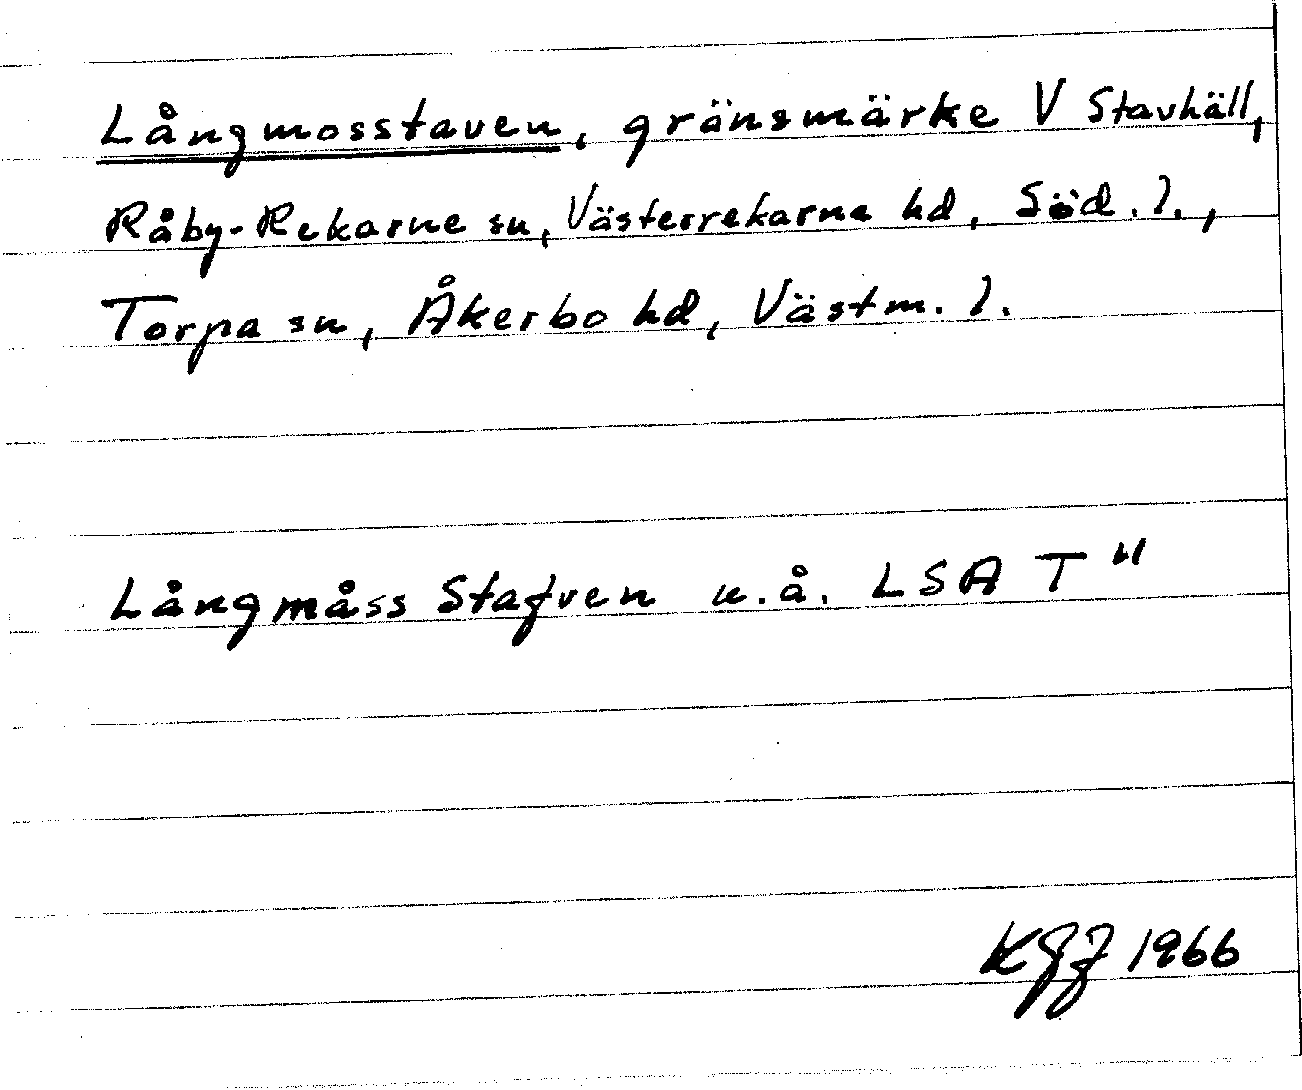 Långmosstaven, gränsmärke V Stavhäll,
Råby-Rekarne sn, Västerrekarne hd, Söd. l.,
Torpa sn, Åkerbo hd, Västm. l.
Långmåss Stafven u.å. LSA T
1966